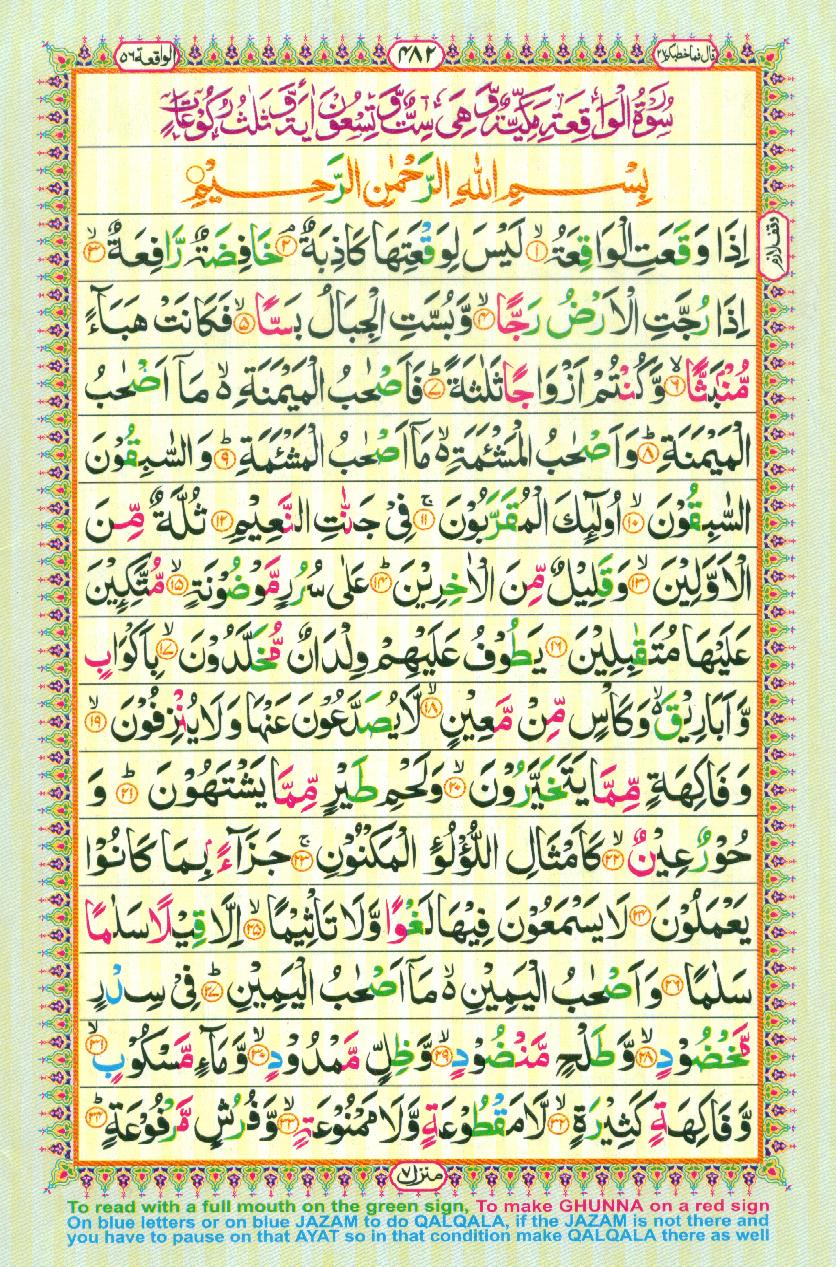 قال فما خطبكم ٢٧
٤٨٢
الواقعة ٥٦
سُوْرَةُ الْوَاقِعَةِ مَكِّيَّةٌ وَّهِىَ سِتٌّ وَّتِسْعُوْنَ اٰيَةً وَّثَلٰثُ رُكُوْعَاتٍ
بِسْمِ اللّٰهِ الرَّحْمٰنِ الرَّحِيْمِ
وقف لازم
اِذَا وَقَعَتِ الْوَاقِعَةُ ۙ﴿١﴾ لَيْسَ لِوَقْعَتِهَا كَاذِبَةٌ ۘ﴿٢﴾ خَافِضَةٌ رَّافِعَةٌ ۙ﴿٣﴾
اِذَا رُجَّتِ الْاَرْضُ رَجًّا ۙ﴿٤﴾ وَّبُسَّتِ الْجِبَالُ بَسًّا ۙ﴿٥﴾ فَكَانَتْ هَبَآءً
مُّنْۢبَثًّا ۙ﴿٦﴾ وَّكُنْتُمْ اَزْوَاجًا ثَلٰثَةً ؕ﴿٧﴾ فَاَصْحٰبُ الْمَيْمَنَةِ ۙ۬ مَاۤ اَصْحٰبُ
الْمَيْمَنَةِ ؕ﴿٨﴾ وَاَصْحٰبُ الْمَشْـَٔمَةِ ۙ۬ مَاۤ اَصْحٰبُ الْمَشْـَٔمَةِ ؕ﴿٩﴾ وَالسّٰبِقُوْنَ
السّٰبِقُوْنَ ۙ﴿١٠﴾ اُولٰٓئِكَ الْمُقَرَّبُوْنَ ۚ﴿١١﴾ فِىْ جَنّٰتِ النَّعِيْمِ ﴿١٢﴾ ثُلَّةٌ مِّنَ
الْاَوَّلِيْنَ ۙ﴿١٣﴾ وَقَلِيْلٌ مِّنَ الْاٰخِرِيْنَ ؕ﴿١٤﴾ عَلٰى سُرُرٍ مَّوْضُوْنَةٍ ۙ﴿١٥﴾ مُّتَّكِـِٕيْنَ
عَلَيْهَا مُتَقٰبِلِيْنَ ﴿١٦﴾ يَطُوْفُ عَلَيْهِمْ وِلْدَانٌ مُّخَلَّدُوْنَ ۙ﴿١٧﴾ بِاَكْوَابٍ
وَّاَبَارِيْقَ ۙ۬ وَكَاْسٍ مِّنْ مَّعِيْنٍ ۙ﴿١٨﴾ لَّا يُصَدَّعُوْنَ عَنْهَا وَلَا يُنْزِفُوْنَ ۙ﴿١٩﴾
وَفَاكِهَةٍ مِّمَّا يَتَخَيَّرُوْنَ ۙ﴿٢٠﴾ وَلَحْمِ طَيْرٍ مِّمَّا يَشْتَهُوْنَ ؕ﴿٢١﴾ وَ
حُوْرٌ عِيْنٌ ۙ﴿٢٢﴾ كَاَمْثَالِ اللُّؤْلُؤِ الْمَكْنُوْنِ ۚ﴿٢٣﴾ جَزَآءًۢ بِمَا كَانُوْا
يَعْمَلُوْنَ ﴿٢٤﴾ لَا يَسْمَعُوْنَ فِيْهَا لَغْوًا وَّلَا تَاْثِيْمًا ۙ﴿٢٥﴾ اِلَّا قِيْلًا سَلٰمًا
سَلٰمًا ﴿٢٦﴾ وَاَصْحٰبُ الْيَمِيْنِ ۙ۬ مَاۤ اَصْحٰبُ الْيَمِيْنِ ؕ﴿٢٧﴾ فِىْ سِدْرٍ
مَّخْضُوْدٍ ۙ﴿٢٨﴾ وَّطَلْحٍ مَّنْضُوْدٍ ۙ﴿٢٩﴾ وَّظِلٍّ مَّمْدُوْدٍ ۙ﴿٣٠﴾ وَّمَآءٍ مَّسْكُوْبٍ ۙ﴿٣١﴾
وَّفَاكِهَةٍ كَثِيْرَةٍ ۙ﴿٣٢﴾ لَّا مَقْطُوْعَةٍ وَّلَا مَمْنُوْعَةٍ ۙ﴿٣٣﴾ وَّفُرُشٍ مَّرْفُوْعَةٍ ؕ﴿٣٤﴾
منزل ٧
To read with a full mouth on the green sign, To make GHUNNA on a red sign
On blue letters or on blue JAZAM to do QALQALA, if the JAZAM is not there and
you have to pause on that AYAT so in that condition make QALQALA there as well